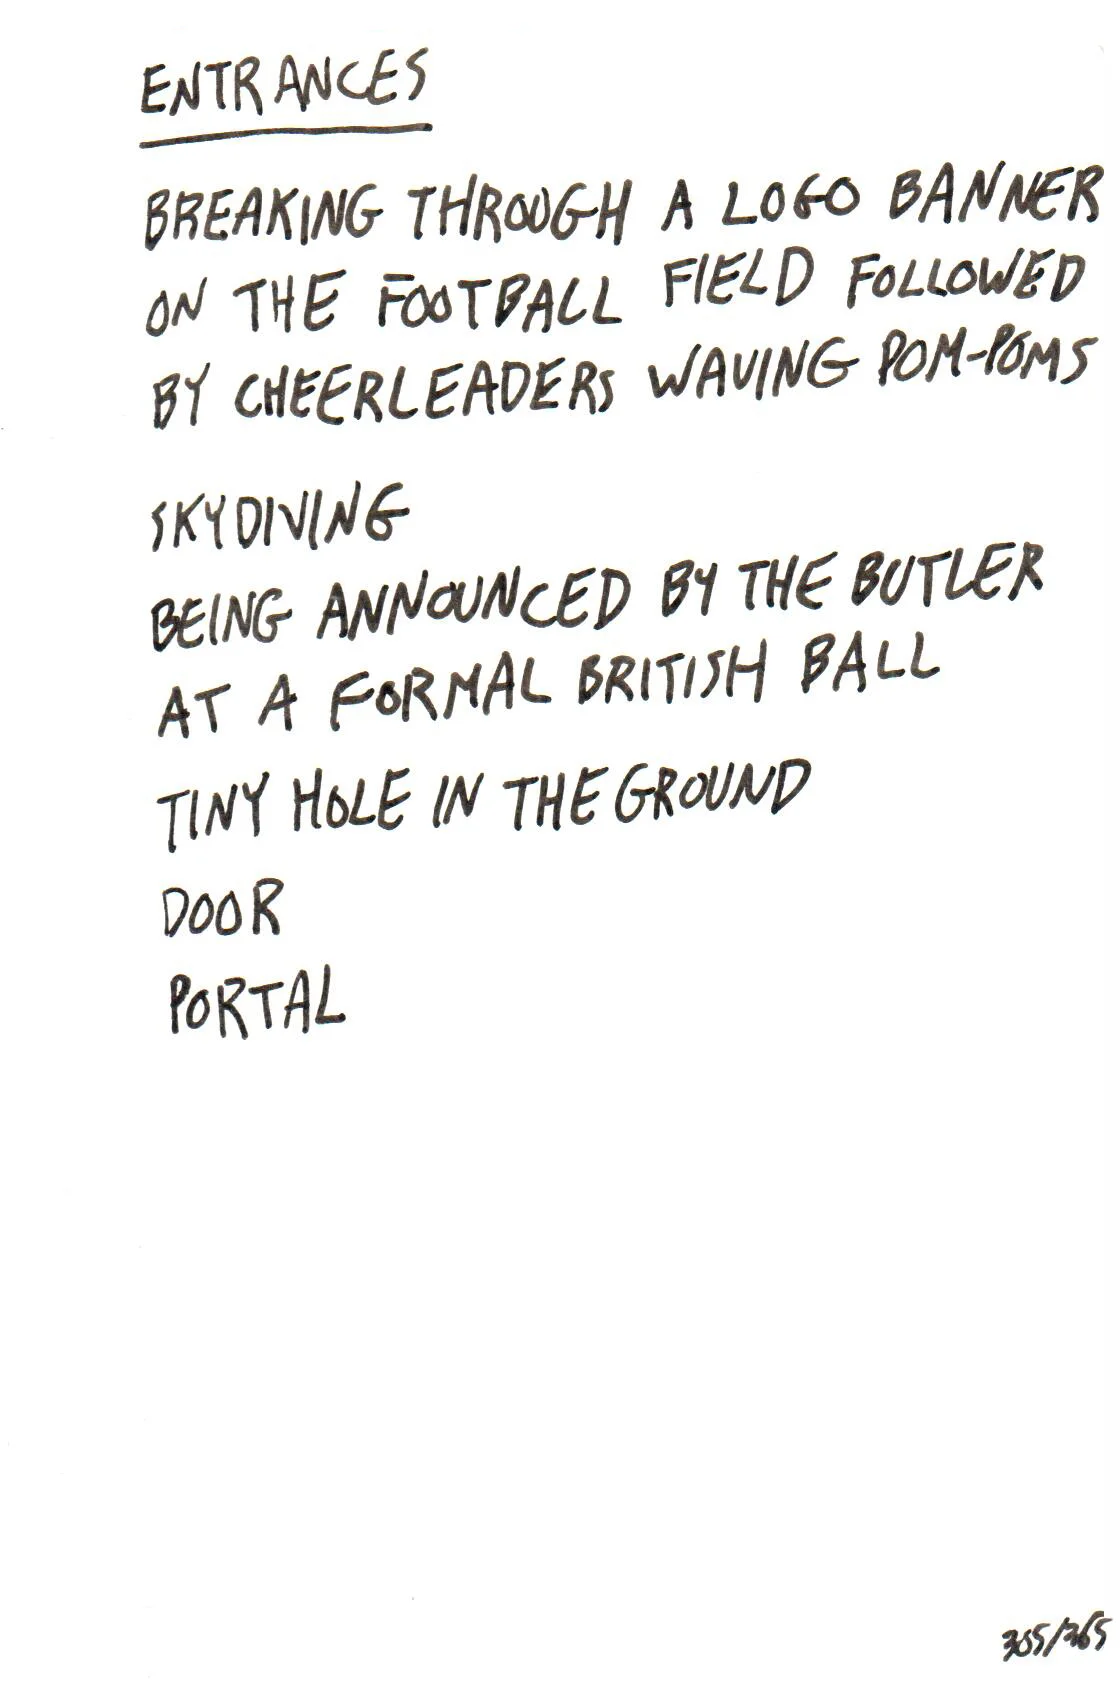 ENTRANCES
BREAKING THROUGH A LOGO BANNER
ON THE FOOTBALL FIELD FOLLOWED
BY CHEERLEADERS WAVING POM-POMS
SKYDIVING
BEING ANNOUNCED BY THE BUTLER
AT A FORMAL BRITISH BALL
TINY HOLE IN THE GROUND
DOOR
PORTAL
305/365